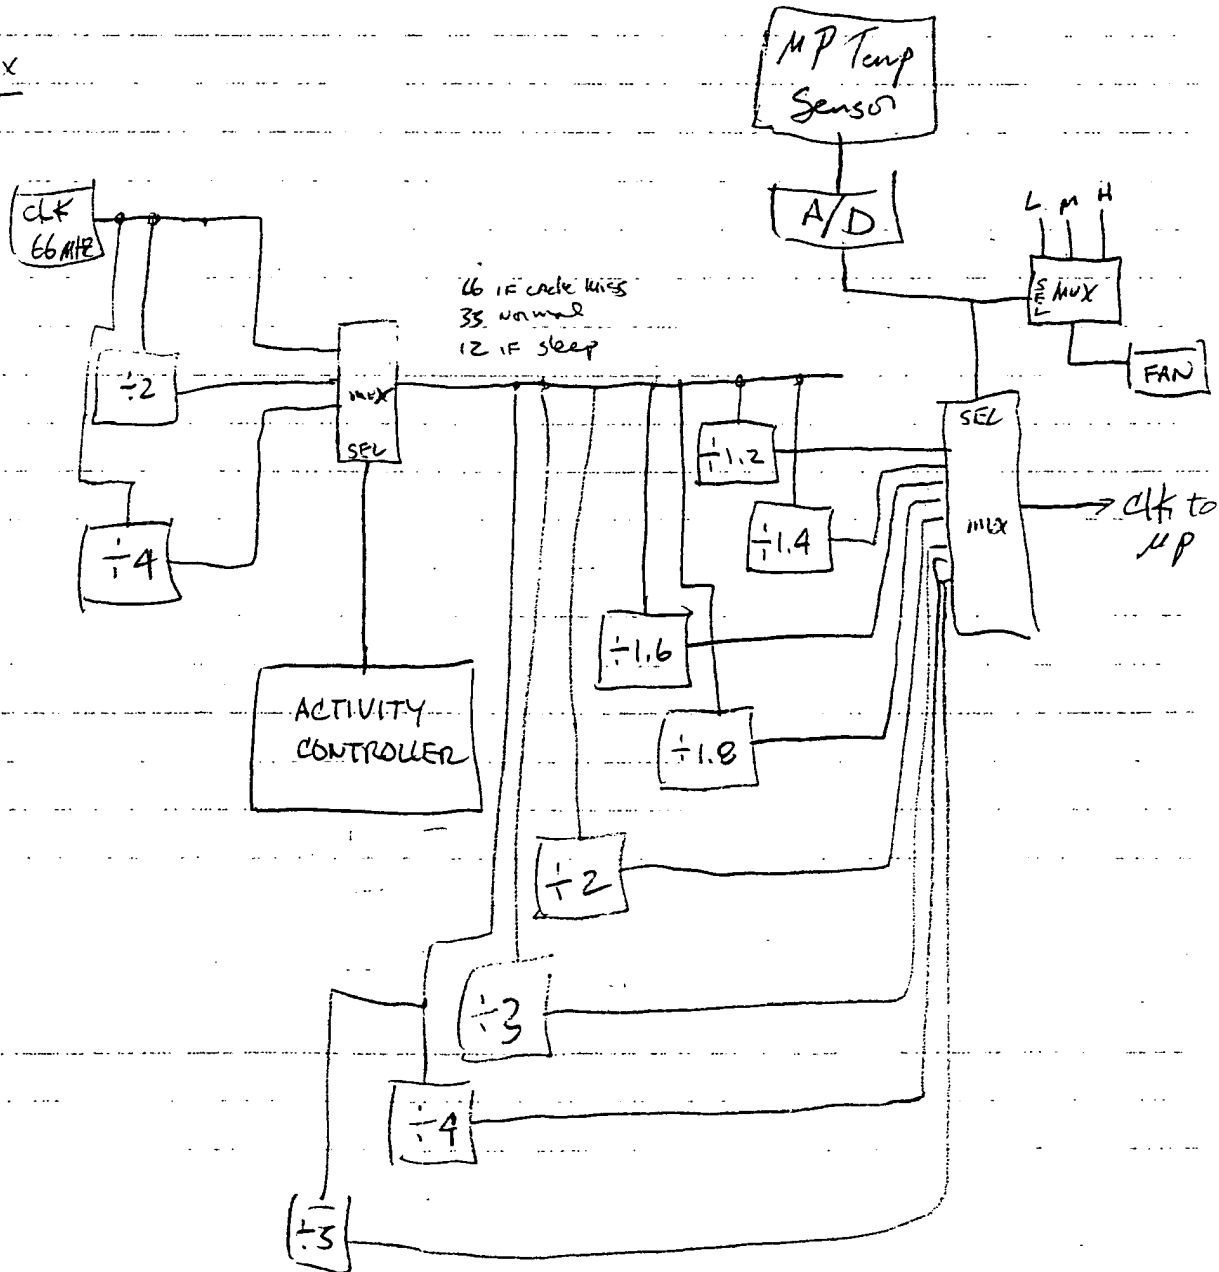 x
μP Temp
Sensor
CLK
66 MHZ
A/D
L M H
SEL MUX
FAN
66 IF cache miss
33 Normal
12 IF sleep
÷2
MUX
SEL
÷4
÷1.2
SEL
MUX
÷1.4
clk to
μp
÷1.6
ACTIVITY
CONTROLLER
÷1.8
÷2
÷3
÷4